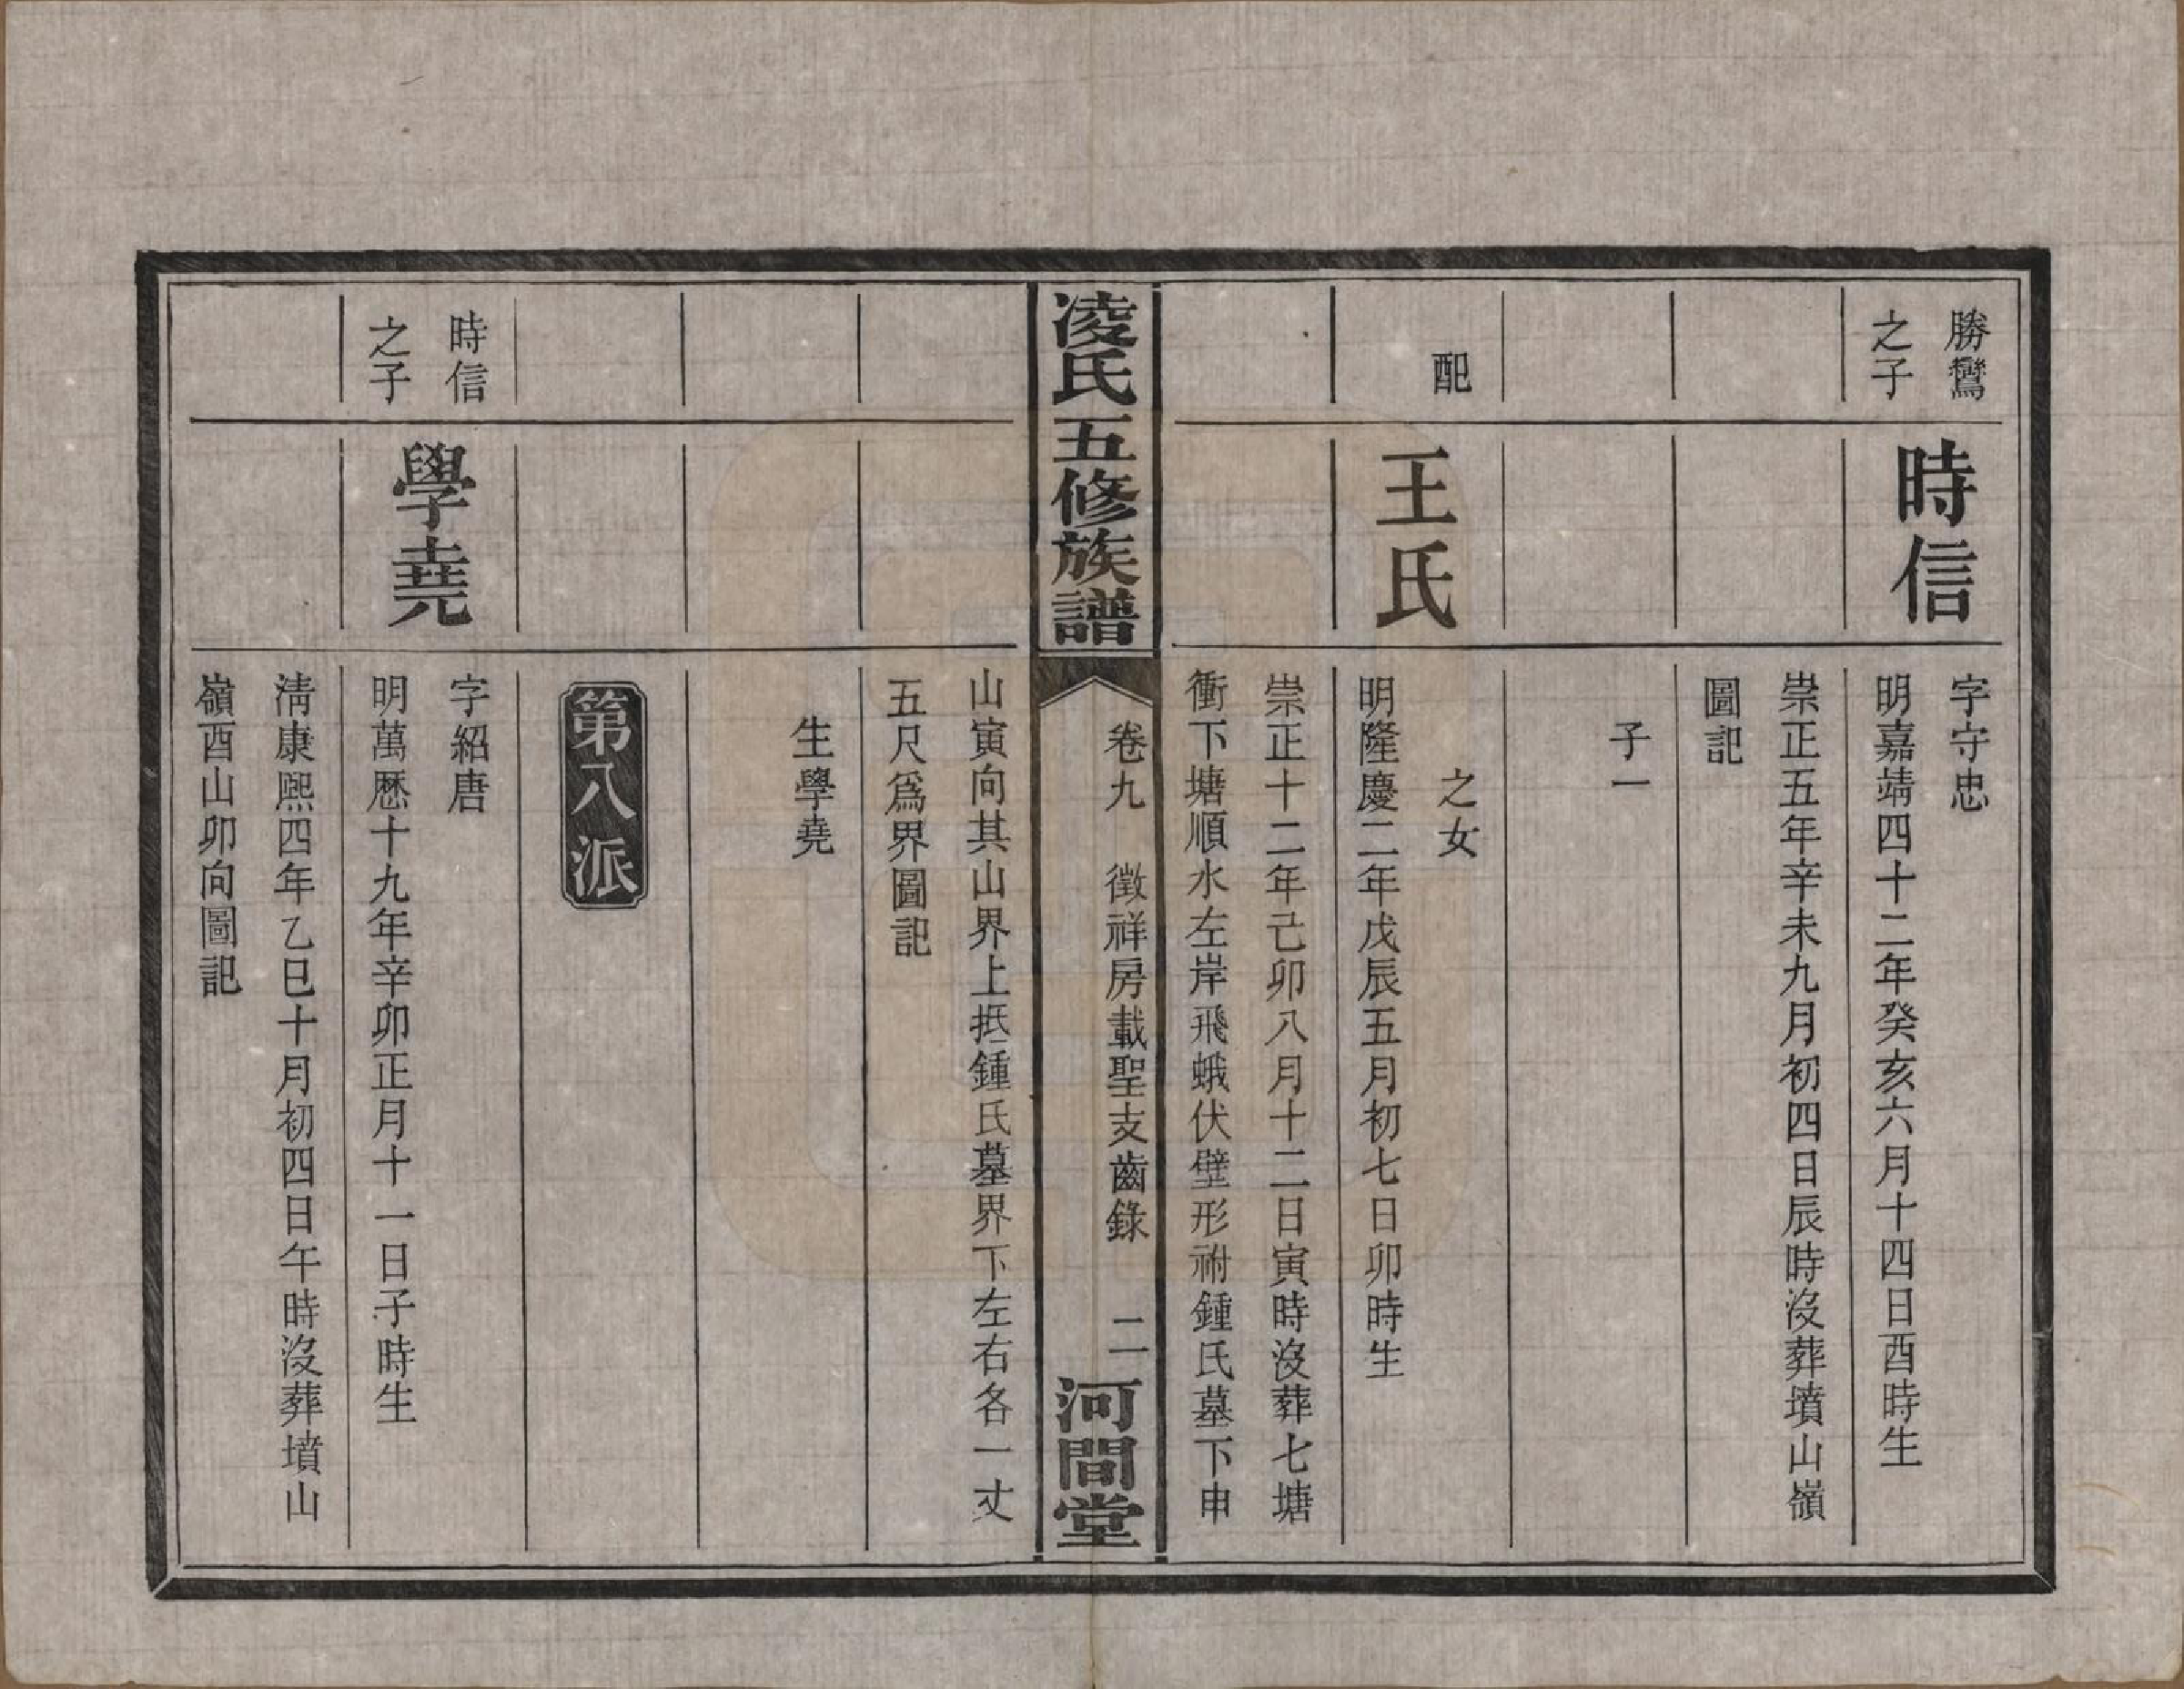 勝鸞
之子
時信
字守忠
明嘉靖四十二年癸亥六月十四日酉時生
崇正五年辛未九月初四日辰時沒葬墳山嶺
圖記
子一
配
王氏
之女
明隆慶二年戊辰五月初七日卯時生
崇正十二年己卯八月十二日寅時沒葬七塘
衝下塘順水左岸飛蛾伏壁形祔鍾氏墓下申
凌氏五修族譜
卷九 徵祥房載聖支齒錄 二
河間堂
山寅向其山界上抵鍾氏墓界下左右各一丈
五尺爲界圖記
生學堯
第八派
時信
之子
學堯
字紹唐
明萬歷十九年辛卯正月十一日子時生
淸康熙四年乙巳十月初四日午時沒葬墳山
嶺酉山卯向圖記